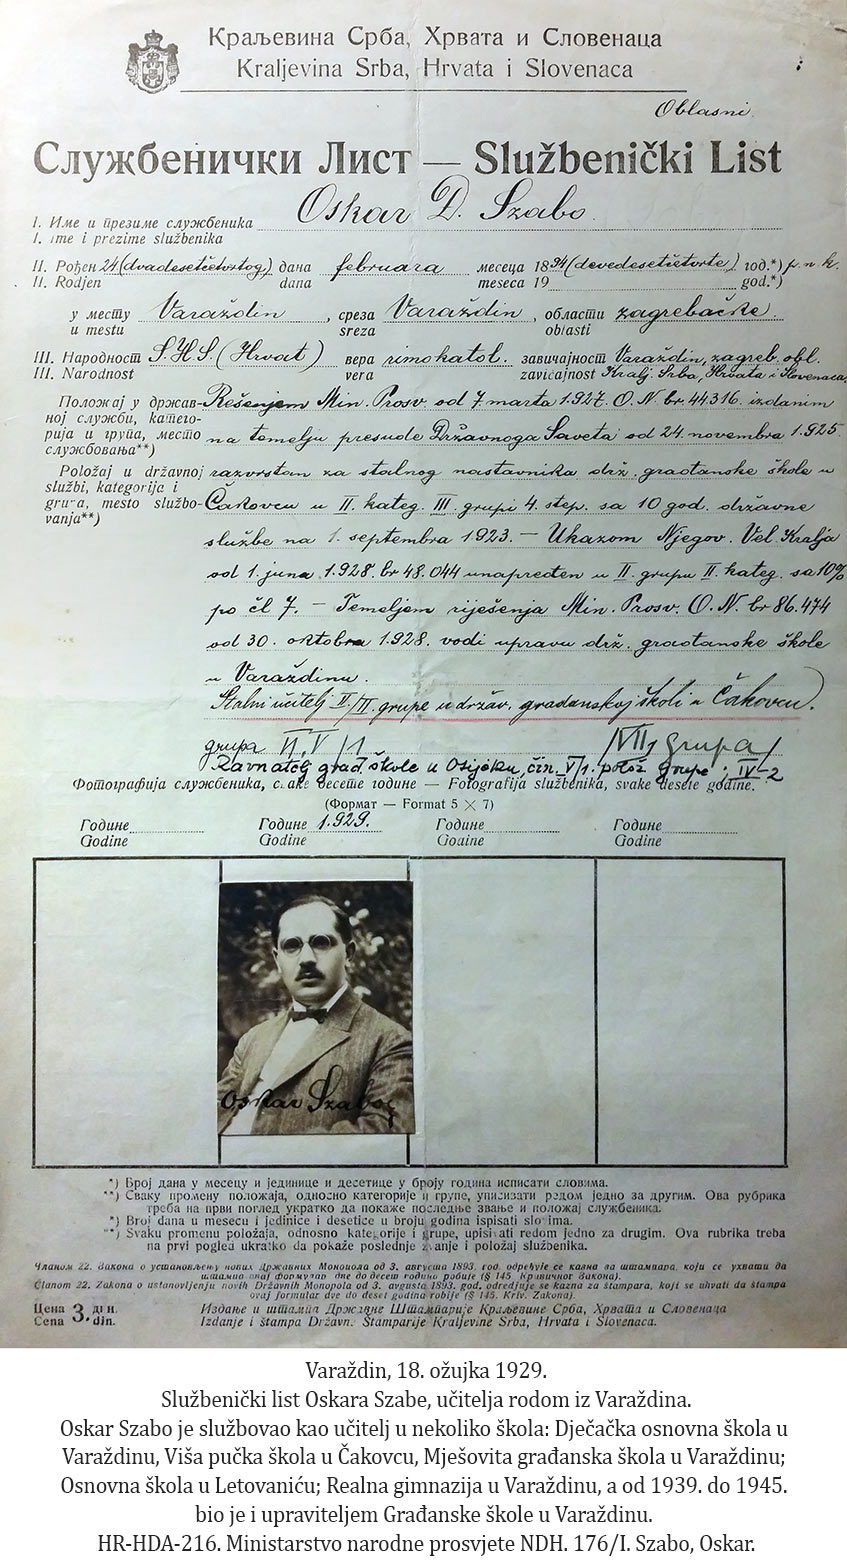 Краљевина Срба, Хрвата и Словенаца
Kraljevina Srba, Hrvata i Slovenaca
Oblasni
Службенички Лист — Službenički List
I. Име и презиме службеника Oskar D. Szabo.
I. Ime i prezime službenika
II. Рођен 24 (dvadesetčetvrtog) дана februara месеца 1894 (devedesetčetvrte) год.*) p. n. k.
II. Rodjen dana meseca 19 god.*)
у месту Varaždin, среза Varaždin, области zagrebačke.
u mestu sreza oblasti
III. Народност S.H.S. (Hrvat) вера rimokatol. завичајност Varaždin, zagreb. obl.
III. Narodnost vera zavičajnost Kralj. Srba, Hrvata i Slovenaca
Положај у држав- Rešenjem Min. Prosv. od 7 marta 1927. O. N. br 44316. izdanim
ној служби, катего-
рија и група, место na temelju presude Državnoga Saveta od 24. novembra 1925.
службовања**)
Položaj u državnoj razvrstan za stalnog nastavnika drž. građanske škole u
službi, kategorija i
grupa, mesto službo- Čakovcu u II. kateg. III. grupi 4. step. sa 10 god. državne
vanja**)
službe na 1. septembra 1923. — Ukazom Njegov. Vel. Kralja
od 1. juna 1928. br 48.044 unapređen u II. grupu II. kateg. sa 10%
po čl 7. — Temeljem riješenja Min. Prosv. O. N. br 86.474
od 30. oktobra 1928. vodi upravu drž. građanske škole
u Varaždinu.
Stalni učitelj II/III. grupe u držav. građanskoj školi u Čakovcu.
grupa V/1 /VII1 grupa/
Ravnatelj građ. škole u Osijeku, čin. V/1. polož. grupe; IV-2
Фотографија службеника, сваке десете године — Fotografija službenika, svake desete godine.
(Формат — Format 5 × 7)
Године Године 1.929. Године Године
Godine Godine Godine Godine
Oskar Szabo
*) Број дана у месецу и јединице и десетице у броју година исписати словима.
**) Сваку промену положаја, односно категорије и групе, уписивати редом једно за другим. Ова рубрика
треба на први поглед укратко да покаже последње звање и положај службеника.
*) Broj dana u mesecu i jedinice i desetice u broju godina ispisati slovima.
**) Svaku promenu položaja, odnosno kategorije i grupe, upisivati redom jedno za drugim. Ova rubrika treba
na prvi pogled ukratko da pokaže poslednje zvanje i položaj službenika.
Чланом 22. Закона о установљењу нових Државних Монопола од 3. августа 1893. год. одређује се казна за штампара, који се ухвати да
штампа овај формулар две до десет година робије (§ 145. Кривичног Закона).
Članom 22. Zakona o ustanovljenju novih Državnih Monopola od 3. avgusta 1893. god. odredjuje se kazna za štampara, koji se uhvati da štampa
ovaj formular dve do deset godina robije (§ 145. Kriv. Zakona).
Цена 3. дин. Издање и штампа Државне Штампарије Краљевине Срба, Хрвата и Словенаца
Cena din. Izdanje i štampa Državn. Štamparije Kraljevine Srba, Hrvata i Slovenaca.
Varaždin, 18. ožujka 1929.
Službenički list Oskara Szabe, učitelja rodom iz Varaždina.
Oskar Szabo je službovao kao učitelj u nekoliko škola: Dječačka osnovna škola u
Varaždinu, Viša pučka škola u Čakovcu, Mješovita građanska škola u Varaždinu;
Osnovna škola u Letovaniću; Realna gimnazija u Varaždinu, a od 1939. do 1945.
bio je i upraviteljem Građanske škole u Varaždinu.
HR-HDA-216. Ministarstvo narodne prosvjete NDH. 176/I. Szabo, Oskar.